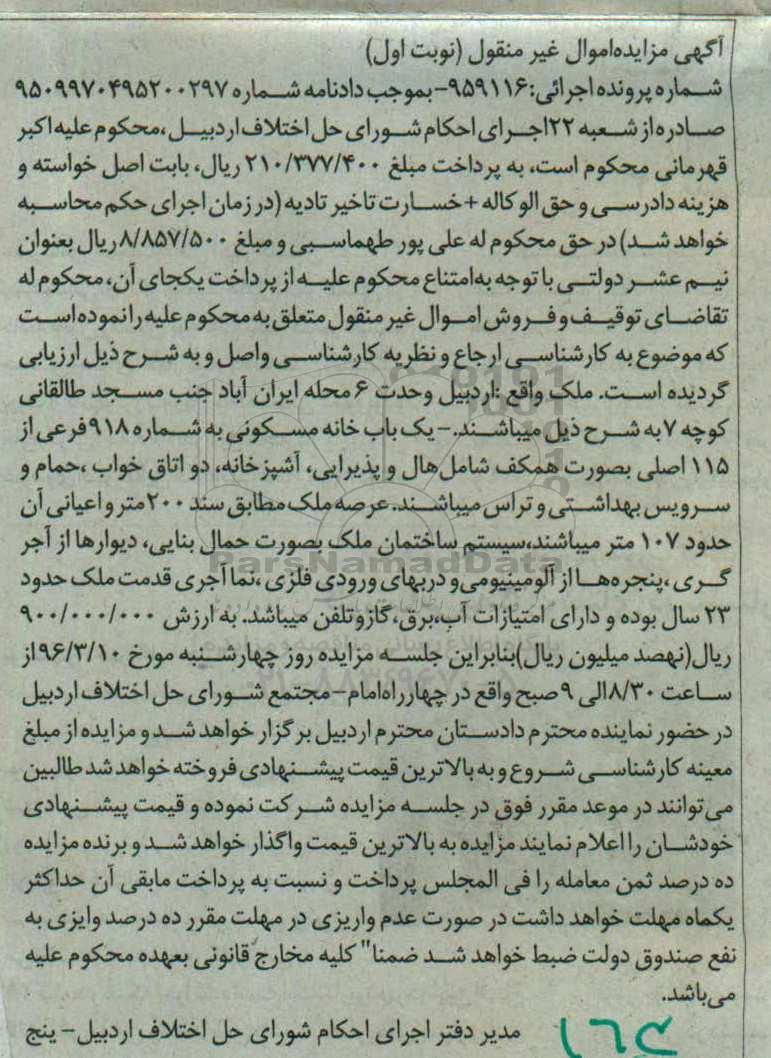 آگهی مزایده‌اموال غیر منقول (نوبت اول)
شماره پرونده اجرائی:۹۵۹۱۱۶- بموجب دادنامه شماره ۹۵۰۹۹۷۰۴۹۵۲۰۰۲۹۷
صادره از شعبه ۲۲اجرای احکام شورای حل اختلاف اردبیل ،محکوم علیه اکبر
قهرمانی محکوم است، به پرداخت مبلغ ۲۱۰/۳۷۷/۴۰۰ ریال، بابت اصل خواسته و
هزینه دادرسی و حق الوکاله +خسارت تاخیر تادیه (در زمان اجرای حکم محاسبه
خواهد شد) در حق محکوم له علی پور طهماسبی و مبلغ ۸/۸۵۷/۵۰۰ ریال بعنوان
نیم عشر دولتی با توجه به‌امتناع محکوم علیه از پرداخت یکجای آن، محکوم له
تقاضای توقیف و فروش اموال غیر منقول متعلق به محکوم علیه را نموده‌است
که موضوع به کارشناسی ارجاع و نظریه کارشناسی واصل و به شرح ذیل ارزیابی
گردیده است. ملک واقع :اردبیل وحدت ۶ محله ایران آباد جنب مسجد طالقانی
کوچه ۷ به شرح ذیل میباشند.- یک باب خانه مسکونی به شماره ۹۱۸ فرعی از
۱۱۵ اصلی بصورت همکف شامل‌هال و پذیرایی، آشپزخانه، دو اتاق خواب ،حمام و
سرویس بهداشتی و تراس میباشند. عرصه ملک مطابق سند ۲۰۰ متر و اعیانی آن
حدود ۱۰۷ متر میباشند،سیستم ساختمان ملک بصورت حمال بنایی، دیوارها از آجر
گری ،پنجره‌ها از آلومینیومی‌و دربهای ورودی فلزی ،نما آجری قدمت ملک حدود
۲۳ سال بوده و دارای امتیازات آب،برق،گازوتلفن میباشد. به ارزش ۹۰۰/۰۰۰/۰۰۰
ریال(نهصد میلیون ریال)بنابراین جلسه مزایده روز چهارشنبه مورخ ۹۶/۳/۱۰ از
ساعت ۸/۳۰الی ۹ صبح واقع در چهارراه‌امام- مجتمع شورای حل اختلاف اردبیل
در حضور نماینده محترم دادستان محترم اردبیل برگزار خواهد شد و مزایده از مبلغ
معینه کارشناسی شروع و به بالاترین قیمت پیشنهادی فروخته خواهد شد طالبین
می‌توانند در موعد مقرر فوق در جلسه مزایده شرکت نموده و قیمت پیشنهادی
خودشان را اعلام نمایند مزایده به بالاترین قیمت واگذار خواهد شد و برنده مزایده
ده درصد ثمن معامله را فی المجلس پرداخت و نسبت به پرداخت مابقی آن حداکثر
یکماه مهلت خواهد داشت در صورت عدم واریزی در مهلت مقرر ده درصد وایزی به
نفع صندوق دولت ضبط خواهد شد ضمنا" کلیه مخارج قانونی بعهده محکوم علیه
می‌باشد.
مدیر دفتر اجرای احکام شورای حل اختلاف اردبیل- پنج
ParsNamadData